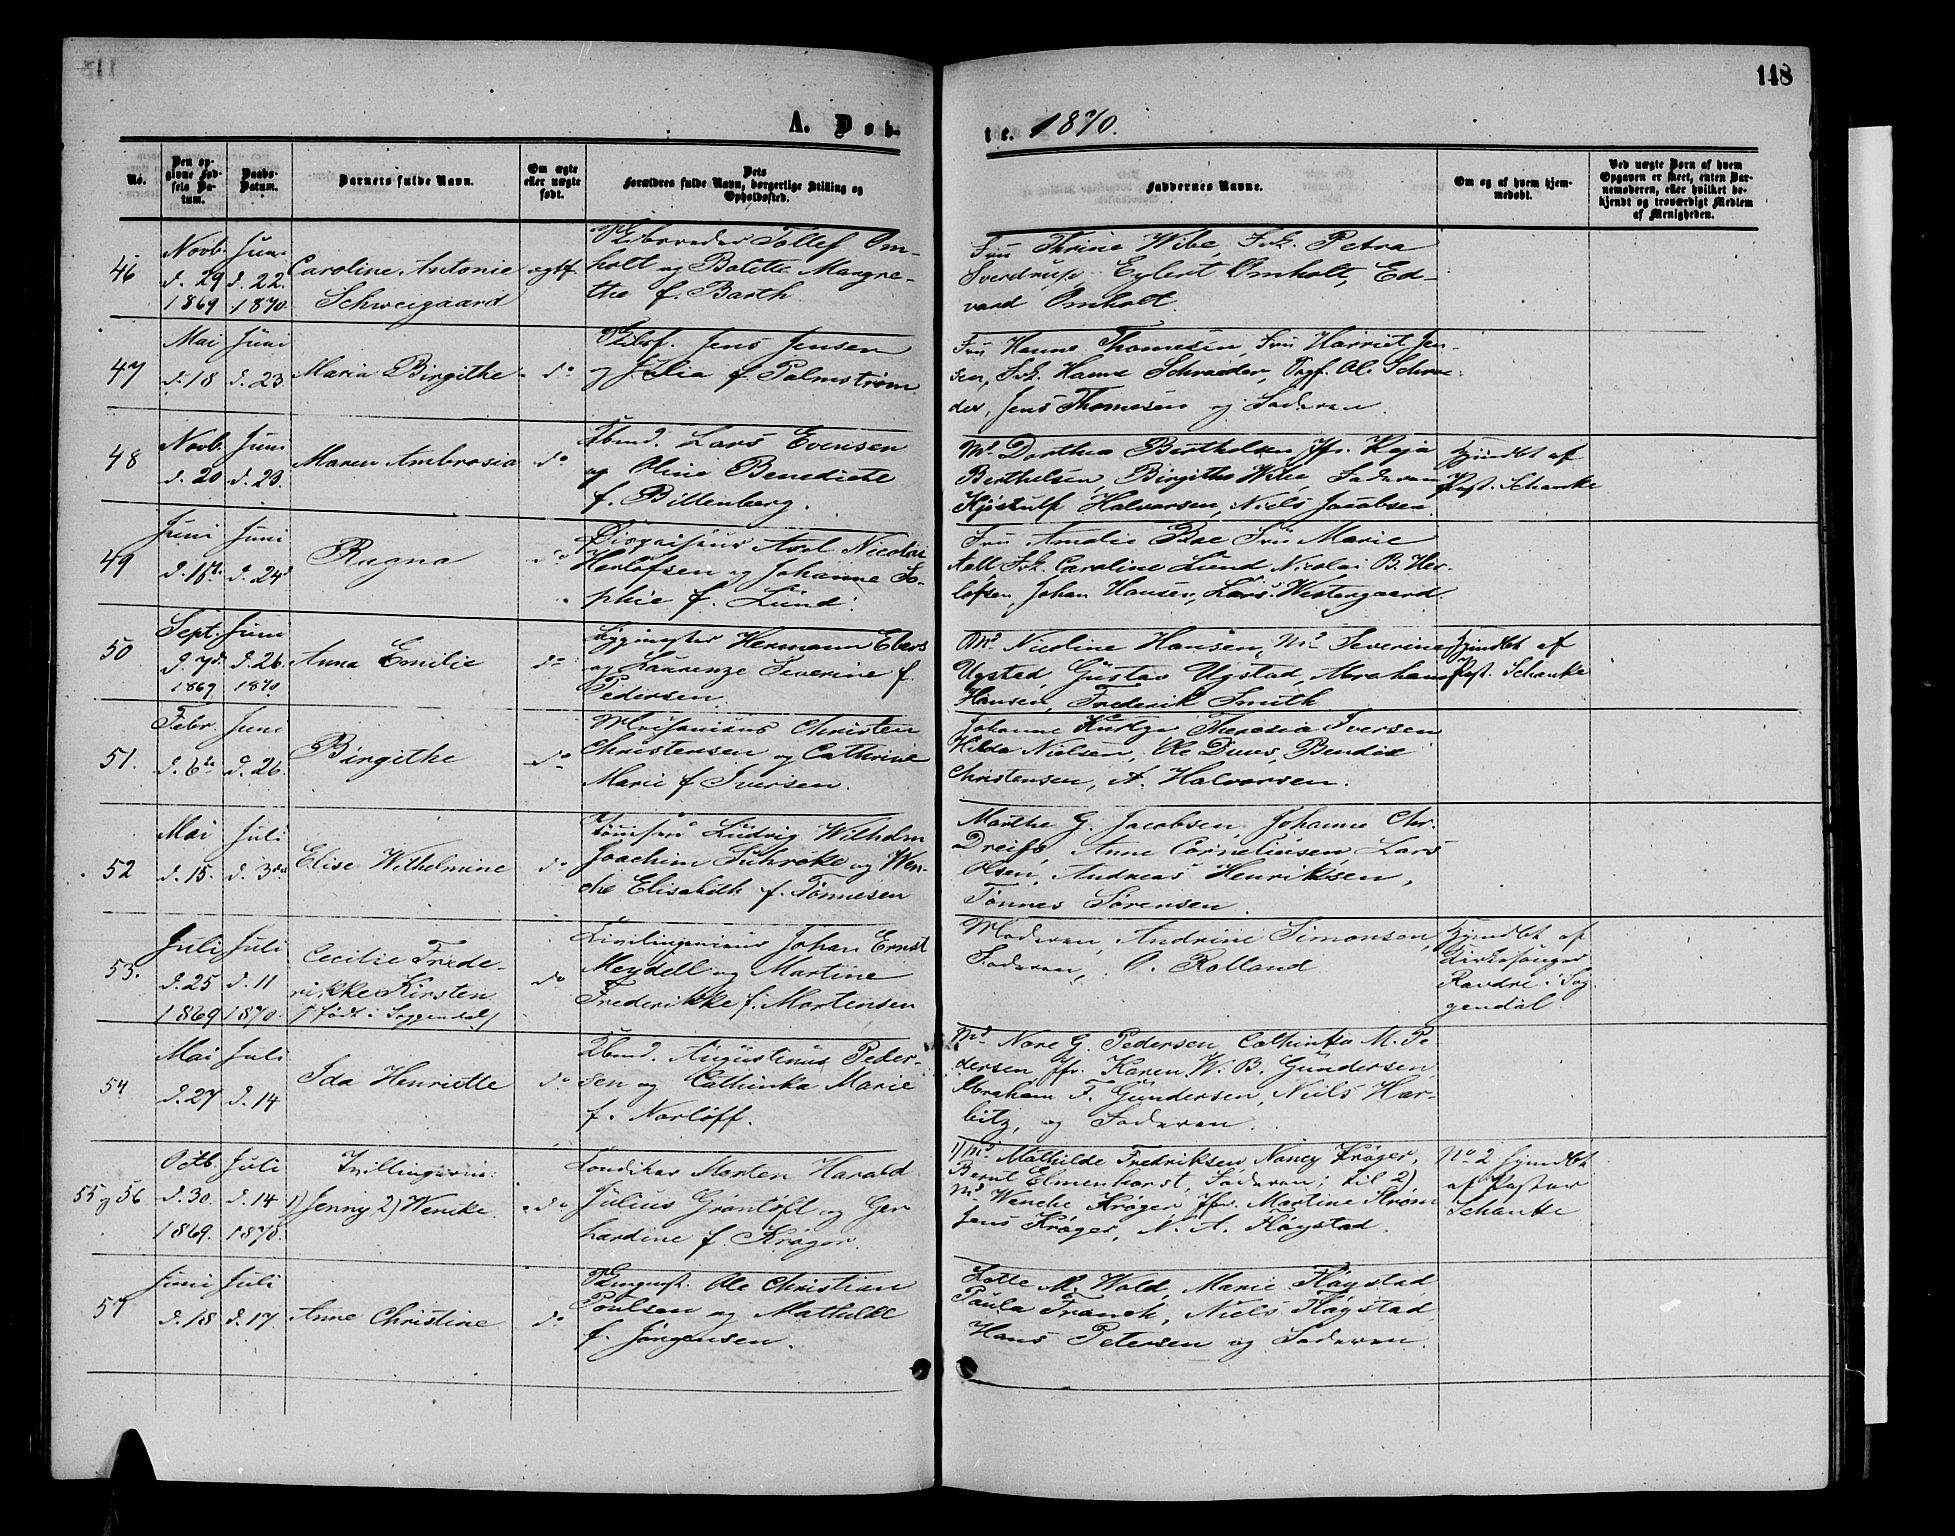 118
A. Døb-
te. 1870.
No.
Den opgivne Fødsels Datum.
Daabs-Datum.
Barnets fulde Navn.
Om ægte eller uægte født.
Dets Forældres fulde Navn, borgerlige Stilling og Opholdssted.
Faddernes Navne.
Om og af hvem hjemmedøbt.
Ved uægte Børn af hvem Opgaven er skeet, enten Barnemoderen, eller hvilket bekjendt og troværdigt Medlem af Menigheden.
46
Novb. d. 29 1869
Juni d. 22. 1870
Caroline Antonie
Schweigaard
ægtef
Tollef Om-
holt og Bolette Margre-
the f. Barth
Fru Thrine Wibe, Frk. Petra
Sverdrup, Eylert Omholt, Ed-
vard Omholt.
47
Mai d. 18
Juni d. 23
Maria Birgithe
do
Skibsf. Jens Jensen
og Julia f. Palmstrøm
Fru Hanne Thomesen, Fru Harriet Jen-
sen, Frk. Hanna Schrøeder, Ol. Schrøe-
der, Jens Thomesen og Faderen.
48
Novb. d. 20
Juni d. 23.
Maren Ambrosia
do
Lars Evensen
og Oline Benedicte
f. Billenberg.
Md. Dorthea Berthelsen, Jfr. Kaja
Berthelsen, Birgithe Wibe, Faderen
Kjøstulf Halvorsen, Niels Jacobsen
Hjemdbt af
Past. Schanke
49
Juni d. 18de
Juni d. 24d
Ragna
do
Axel Nicolai
Herlofsen og Johanne So-
phie f. Lund.
Fru Amalie Boe Fru Marie
Aall Frk. Caroline Lund Nicolai B. Her-
lofsen, Johan Hansen, Lars Westergaard.
50
Sept. d. 7d. 1869
Juni d. 26. 1870
Anna Emilie
do
Hermann Ebers
og Laurenze Severine f.
Pedersen.
Md. Nicoline Hansen, Md. Severine
Ugstad, Gustav Ugstad, Abraham
Hansen, Frederik Smith
Hjemdbt af
Past. Schanke
51.
Febr. d. 6te
Juni d. 26.
Birgithe
do
Christen
Christensen og Cathrine
Marie f. Iversen.
Johanne Theresia Iversen
Hilda Nielsen, Ole Duus, Bendix
Christensen, A. Halvorsen.
52
Mai d. 15.
Juli d. 3die
Elise Wilhelmine
do
Ludvig Wilhelm
Joachim Suhrcke og Wen-
che Elisabeth f. Tønnesen
Marthe G. Jacobsen, Johanne Chr.
Anne Corneliusen, Lars
Olsen, Andreas Henriksen,
Tønnes Sørensen.
53.
Juli d. 25 1869
Juli d. 11 1870.
Cecilie Frede-
rikke Kirsten
/: født i Soggendal/
do
Civilingenieur Johan Ernst
Meydell og Martine
Frederikke f. Mortensen
Moderen, Andrine Simonsen,
Faderen, O. Rolland
Hjemdbt af
Kirkesanger
i Sog-
gendal.
54
Mai d. 27
Juli d. 14
Ida Henriette
do
Augustinus Peder-
sen og Cathinka Marie
f. Norløff.
Md. Nare G. Pedersen Cathinka M. Pe-
dersen Jfr. Karen W. B. Gundersen
Abraham F. Gundersen, Niels Hær-
bitz, og Faderen.
55 og 56
Octb. d. 30. 1869.
Juli d. 14 1870.
Tvillingerne:
1) Jenny 2) Wenike.
do
Conditor Morten Harald
Julius Grøntoft og Ger-
hardine f. Krøger.
1) Md. Mathilde Fredriksen, Nancy Krøger,
Bernt Elmenhorst, Faderen; til 2)
Md. Wenche Krøger, Jfr. Martine Strøm
Jens Krøger, N. A. Fløystad.
No 2 Hjemdbt
af Pastor
Schanke
57
Juni d. 18
Juli d. 17.
Anne Christine
do
Ole Christian
Poulsen og Mathilde
f. Jørgensen.
Lotte M. Wold, Marie Fløystad
Paula Franck, Niels Fløystad,
Hans Petersen og Faderen.